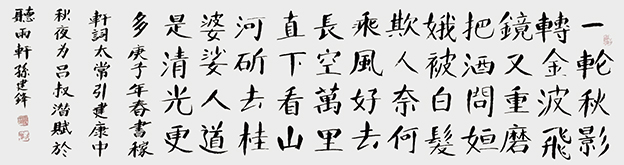 一輪秋影
轉金波飛
鏡又重磨
把酒問姮
娥被白髮
欺人奈何
乘風好去
長空萬里
直下看山
河斫去桂
婆娑人道
是清光更
多 庚子年春書稼
軒詞太常引建康中
秋夜为呂叔潛賦於
聽雨軒 孫建鋒